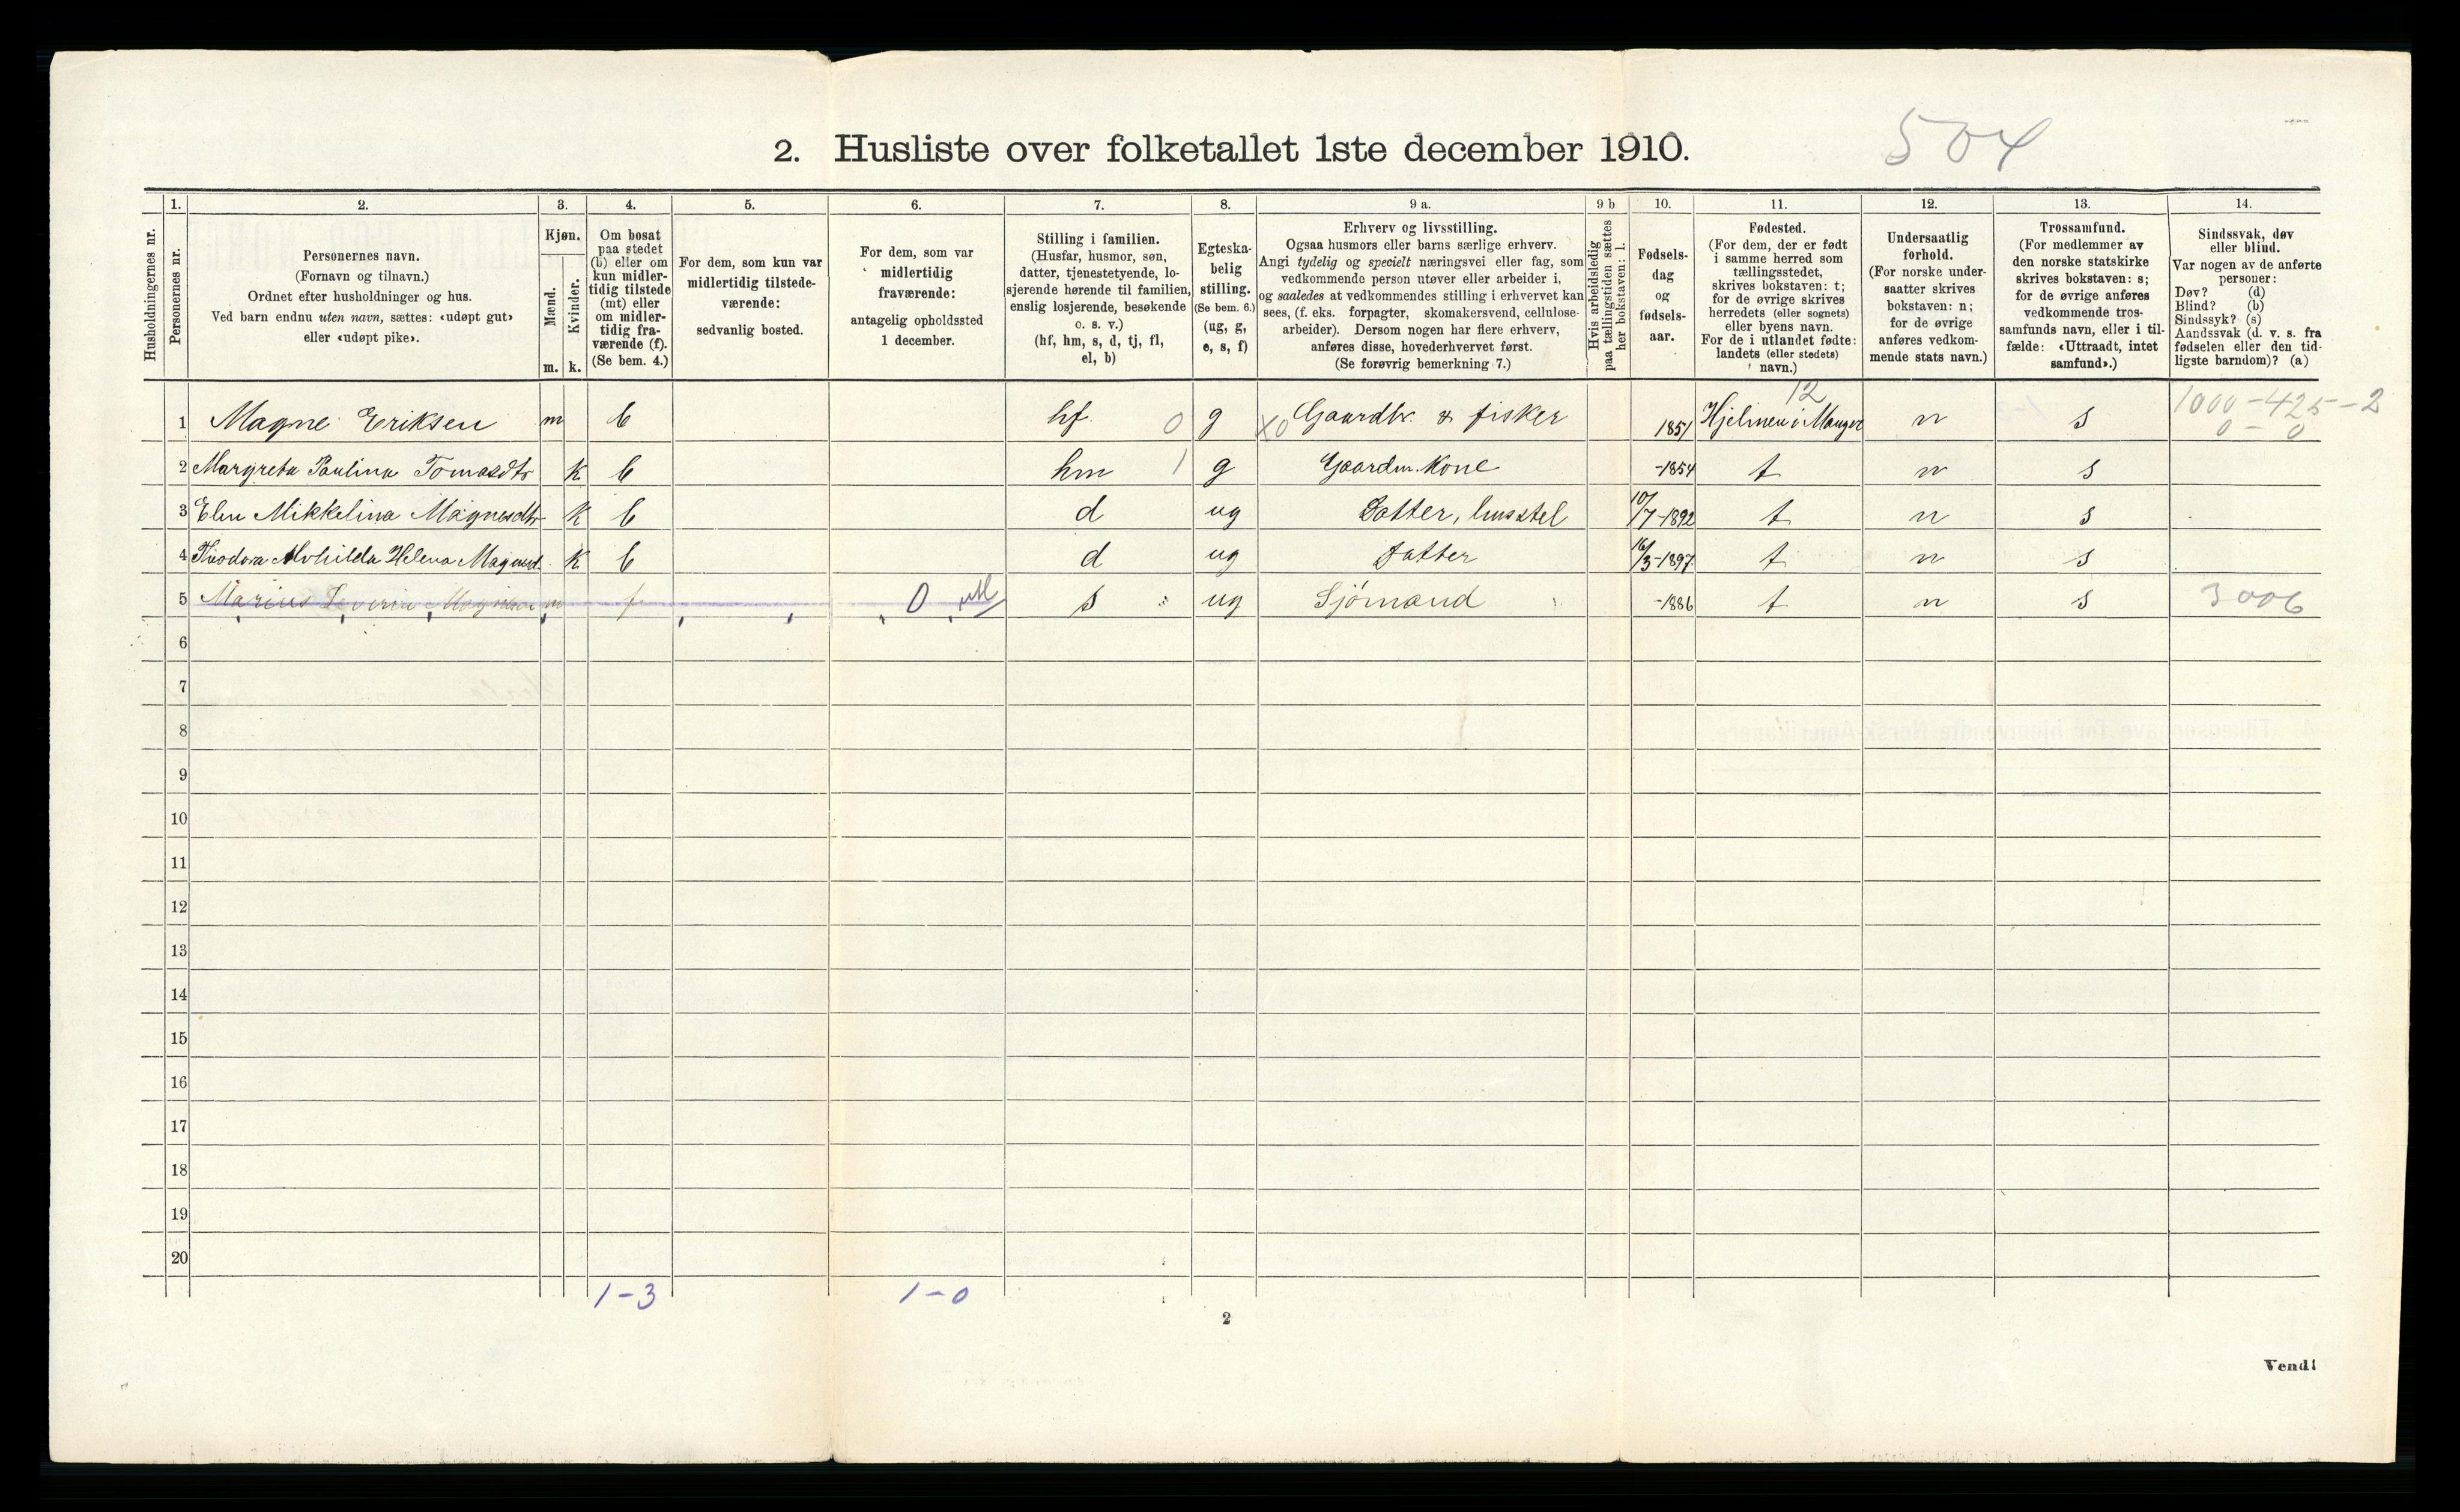 504
2. Husliste over folketallet 1ste december 1910.
Husholdningernes nr.
1.
Personernes nr.
2.
Personernes navn.
(Fornavn og tilnavn.)
Ordnet efter husholdninger og hus.
Ved barn endnu uten navn, sættes: «udøpt gut»
eller «udøpt pike».
3.
Kjøn.
Mænd.
Kvinder.
m. k.
4.
Om bosat
paa stedet
(b) eller om
kun midler-
tidig tilstede
(mt) eller
om midler-
tidig fra-
værende (f).
(Se bem. 4.)
5.
For dem, som kun var
midlertidig tilstede-
værende:
sedvanlig bosted.
6.
For dem, som var
midlertidig
fraværende:
antagelig opholdssted
1 december.
7.
Stilling i familien.
(Husfar, husmor, søn,
datter, tjenestetyende, lo-
sjerende hørende til familien,
enslig losjerende, besøkende
o. s. v.)
(hf, hm, s, d, tj, fl,
el, b)
8.
Egteska-
belig
stilling.
(Se bem. 6.)
(ug, g,
e, s, f)
9 a.
Erhverv og livsstilling.
Ogsaa husmors eller barns særlige erhverv.
Angi tydelig og specielt næringsvei eller fag, som
vedkommende person utøver eller arbeider i,
og saaledes at vedkommendes stilling i erhvervet kan
sees, (f. eks. forpagter, skomakersvend, cellulose-
arbeider). Dersom nogen har flere erhverv,
anføres disse, hovederhvervet først.
(Se forøvrig bemerkning 7.)
9 b
Hvis arbeidsledig
paa tællingstiden sættes
her bokstaven: l.
10.
Fødsels-
dag
og
fødsels-
aar.
11.
Fødested.
(For dem, der er født
i samme herred som
tællingsstedet,
skrives bokstaven: t;
for de øvrige skrives
herredets (eller sognets)
eller byens navn.
For de i utlandet fødte:
landets (eller stedets)
navn.)
12.
Undersaatlig
forhold.
(For norske under-
saatter skrives
bokstaven: n;
for de øvrige
anføres vedkom-
mende stats navn.)
13.
Trossamfund.
(For medlemmer av
den norske statskirke
skrives bokstaven: s;
for de øvrige anføres
vedkommende tros-
samfunds navn, eller i til-
fælde: «Uttraadt, intet
samfund».)
14.
Sindssvak, døv
eller blind.
Var nogen av de anførte
personer:
Døv? (d)
Blind? (b)
Sindssyk? (s)
Aandssvak (d. v. s. fra
fødselen eller den tid-
ligste barndom)? (a)
12 1000-425-2
1 Magne Eriksen m b hf 0 g X0 Gaardbr. & fisker 1851 Hjelmen i Manger n s 0-0
2 Margreta Paulina Tomasdtr k b hm 1 g Gaardm. Kone -1854 t n s
3 Elen Mikkelina Magnesdtr k b d ug Datter, husstel 10/7-1892 t n s
4 Teodora Alvhilda Helena Magnesd. k b d ug Datter 16/3-1897 t n s
5 Marius Severin m f 0 utl s ug Sjømand -1886 t n s 3006
6
7
8
9
10
11
12
13
14
15
16
17
18
19
20
1-3 1-0
2
Vend!